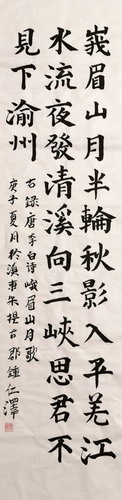 峩眉山月半輪秋影入平羌江
水流夜發清溪向三峽思君不
見下渝州
右錄唐李白詩峨眉山月歌
庚子夏月於滇東朱提古郡鍾仁澤